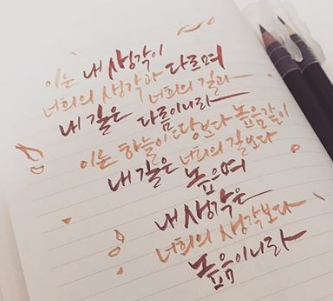 이는 내 생각이
너희의 생각과 다르며
내 길은 너희의 길과
다름이니라
이는 하늘이 땅보다 높음같이
내 길은 너희의 길보다
높으며
내 생각은
너희의 생각보다
높음이니라